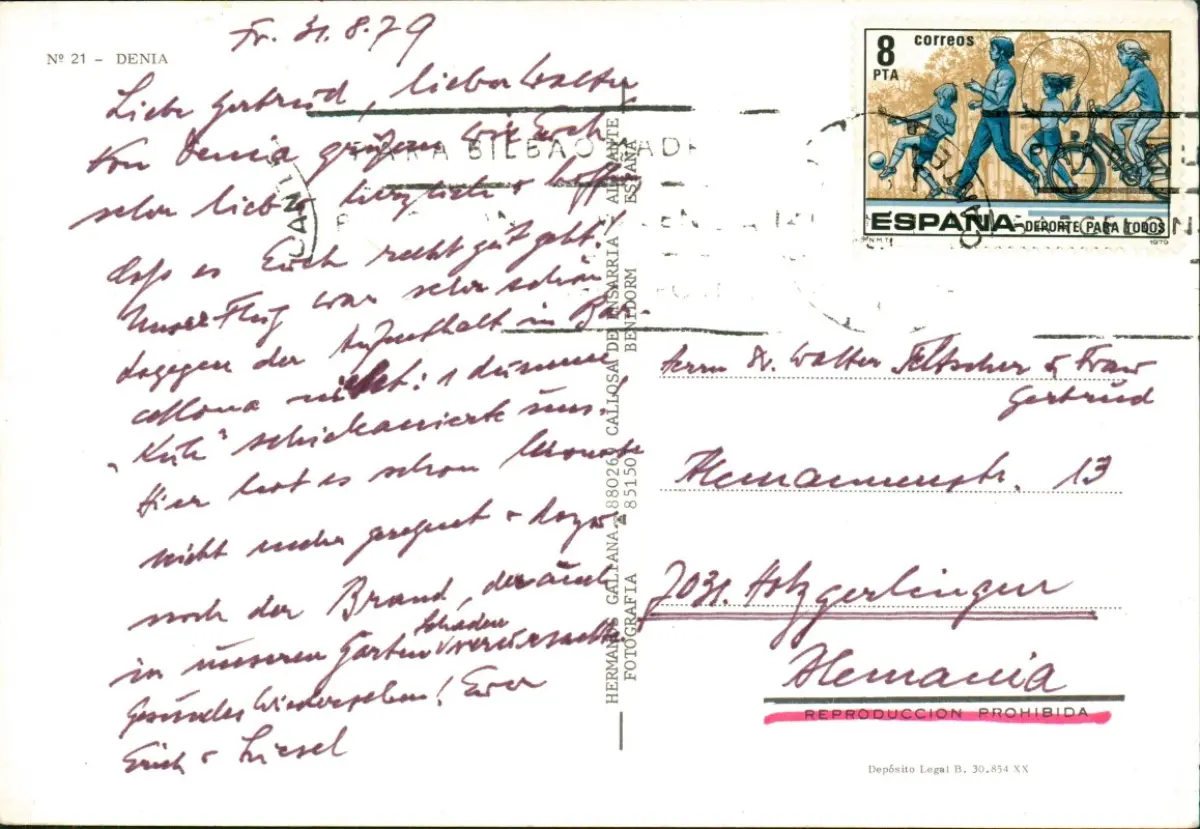 Fr. 31.8.79
Nº 21 - DENIA
Liebe Gertrud, lieber Walter
Von Denia grüßen wir Euch
sehr lieb + herzlich + hoffen
daß es Euch recht gut geht!
Unser Flug war sehr schön
dagegen der Aufenthalt in Bar-
cellona nicht: 1 dumme
„Kuh" schickanierte uns.
Hier hat es schon Monate
nicht mehr geregnet + dazu
noch der Brand, der auch
in unserem Garten Schaden verursachte.
Gesundes Wiedersehen! Eure
Erich + Liesel
HERMANOS GALIANA. 88026 CALLOSA DE ENSARRIA - ALICANTE
FOTOGRAFIA 851501 BENIDORM ESPAÑA
8
PTA
correos
ESPAÑA
DEPORTE PARA TODOS
1979
PARA BILBAO MADR
Herrn Dr. Walter Feltscher u Frau
Gertrud
Alemannenstr. 13
7031. Holzgerlingen
Alemania
REPRODUCCION PROHIBIDA
Depósito Legal B. 30.854 XX